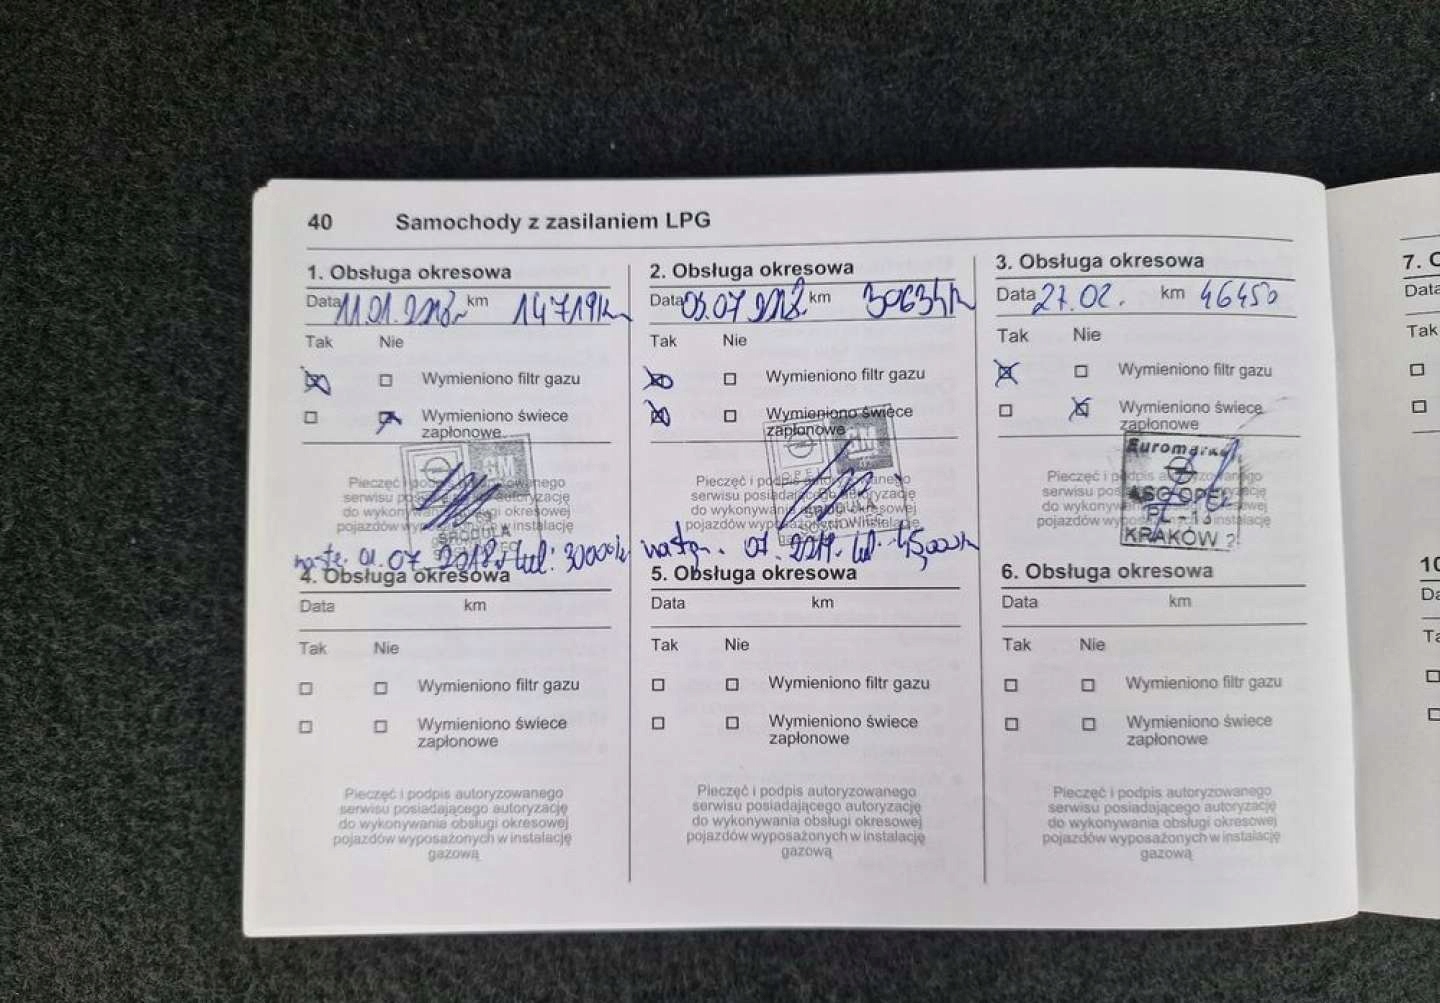 40 Samochody z zasilaniem LPG
1. Obsługa okresowa
Data 11.01.2018r km 14719km
Tak Nie
Wymieniono filtr gazu
Wymieniono świece
zapłonowe
Pieczęć i podpis autoryzowanego
serwisu posiadającego autoryzację
do wykonywania obsługi okresowej
pojazdów wyposażonych w instalację
GM
ŚRODULA
01.07.2018r lub: 30000k
2. Obsługa okresowa
Data 05.07.2018 km 30634k
Tak Nie
Wymieniono filtr gazu
Wymieniono świece
zapłonowe
Pieczęć i podpis autoryzowanego
serwisu posiadającego autoryzację
do wykonywania obsługi okresowej
pojazdów wyposażonych w instalację
OPEL
GM
ŚRODULA
nastęn. 07.2019. lub: 45,000k
3. Obsługa okresowa
Data 27.02. km 46450
Tak Nie
Wymieniono filtr gazu
Wymieniono świece
zapłonowe
Pieczęć i podpis autoryzowanego
serwisu posiadającego autoryzację
do wykonywania obsługi okresowej
pojazdów wyposażonych w instalację
Euromarket
ASO OPEL
KRAKÓW 2
4. Obsługa okresowa
Data km
Tak Nie
Wymieniono filtr gazu
Wymieniono świece
zapłonowe
Pieczęć i podpis autoryzowanego
serwisu posiadającego autoryzację
do wykonywania obsługi okresowej
pojazdów wyposażonych w instalację
gazową
5. Obsługa okresowa
Data km
Tak Nie
Wymieniono filtr gazu
Wymieniono świece
zapłonowe
Pieczęć i podpis autoryzowanego
serwisu posiadającego autoryzację
do wykonywania obsługi okresowej
pojazdów wyposażonych w instalację
gazową
6. Obsługa okresowa
Data km
Tak Nie
Wymieniono filtr gazu
Wymieniono świece
zapłonowe
Pieczęć i podpis autoryzowanego
serwisu posiadającego autoryzację
do wykonywania obsługi okresowej
pojazdów wyposażonych w instalację
gazową
7.
Data
Tak
10